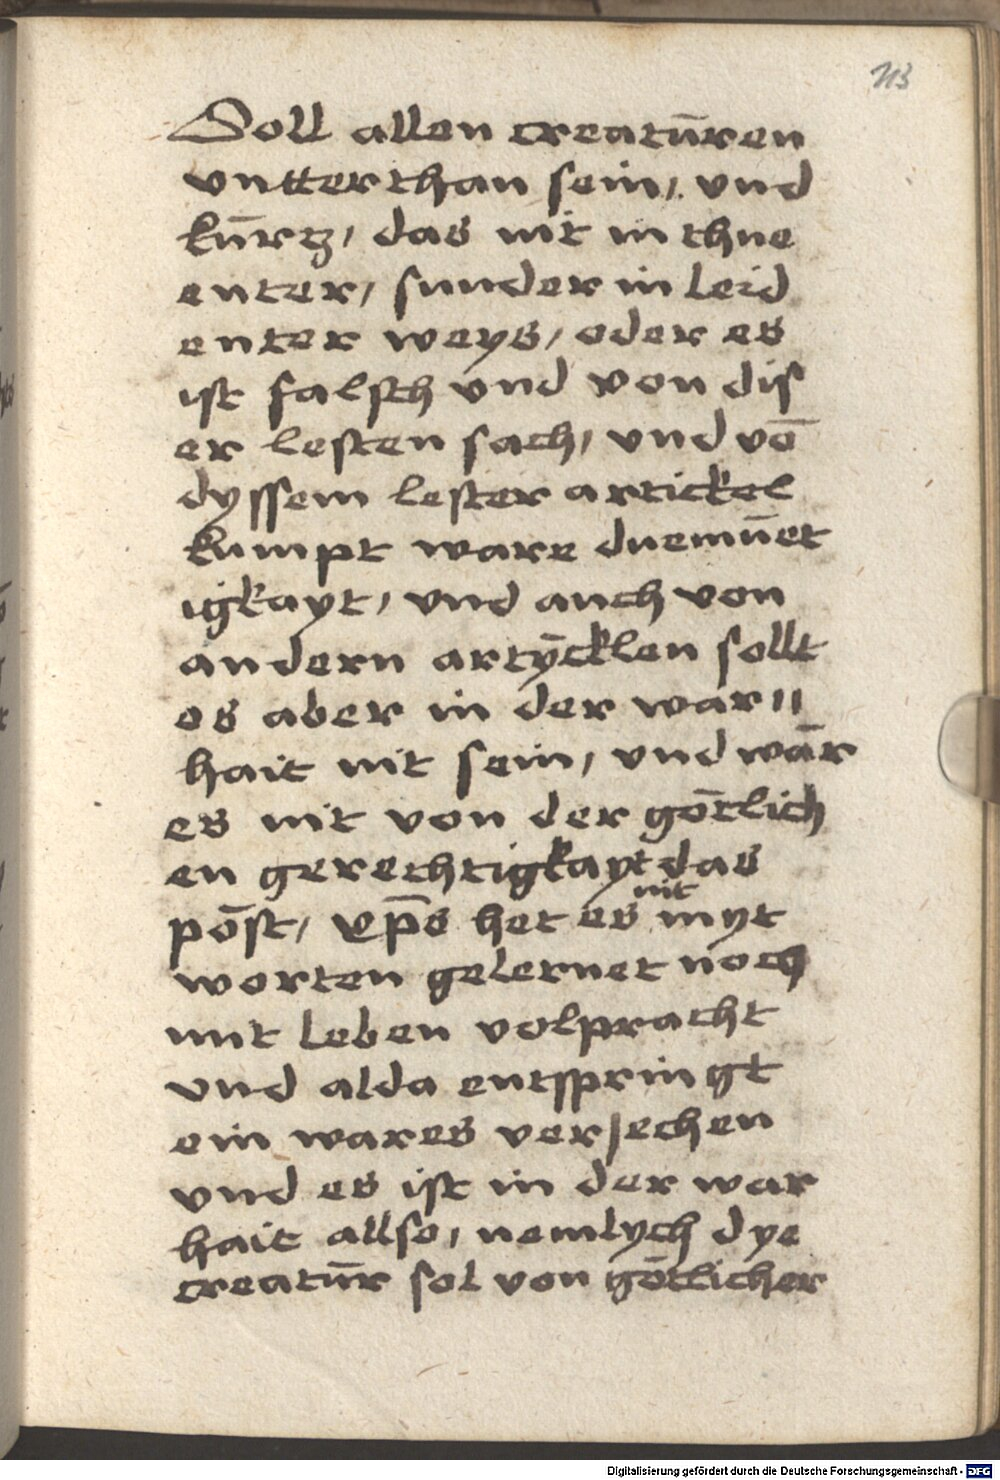 713
Soll allen creatūren
vntterthan sein, vnd
kūrtz, das nit in thue
enter, sunder in leid
enter weys, oder es
ist falsch vnd von dis
er lesten sach, vnd vō
dyssem lester artickel
kumpt ware duemūet
igkayt, vnd auch von
andern artȳcklen sollt
es aber in der war〃
hait nit sein, vnd wār
es nit von der gōtlich
en gerechtigkayt das
nit
pōst, xp̄s het es myt
worten gelernet noch
mit leben volpracht
vnd alda entspringt
ein wares verjechen
vnd es ist in der war
hait allso, nemlych dye
creatūr sol von gōtlicher
Digitalisierung gefördert durch die Deutsche Forschungsgemeinschaft - DFG